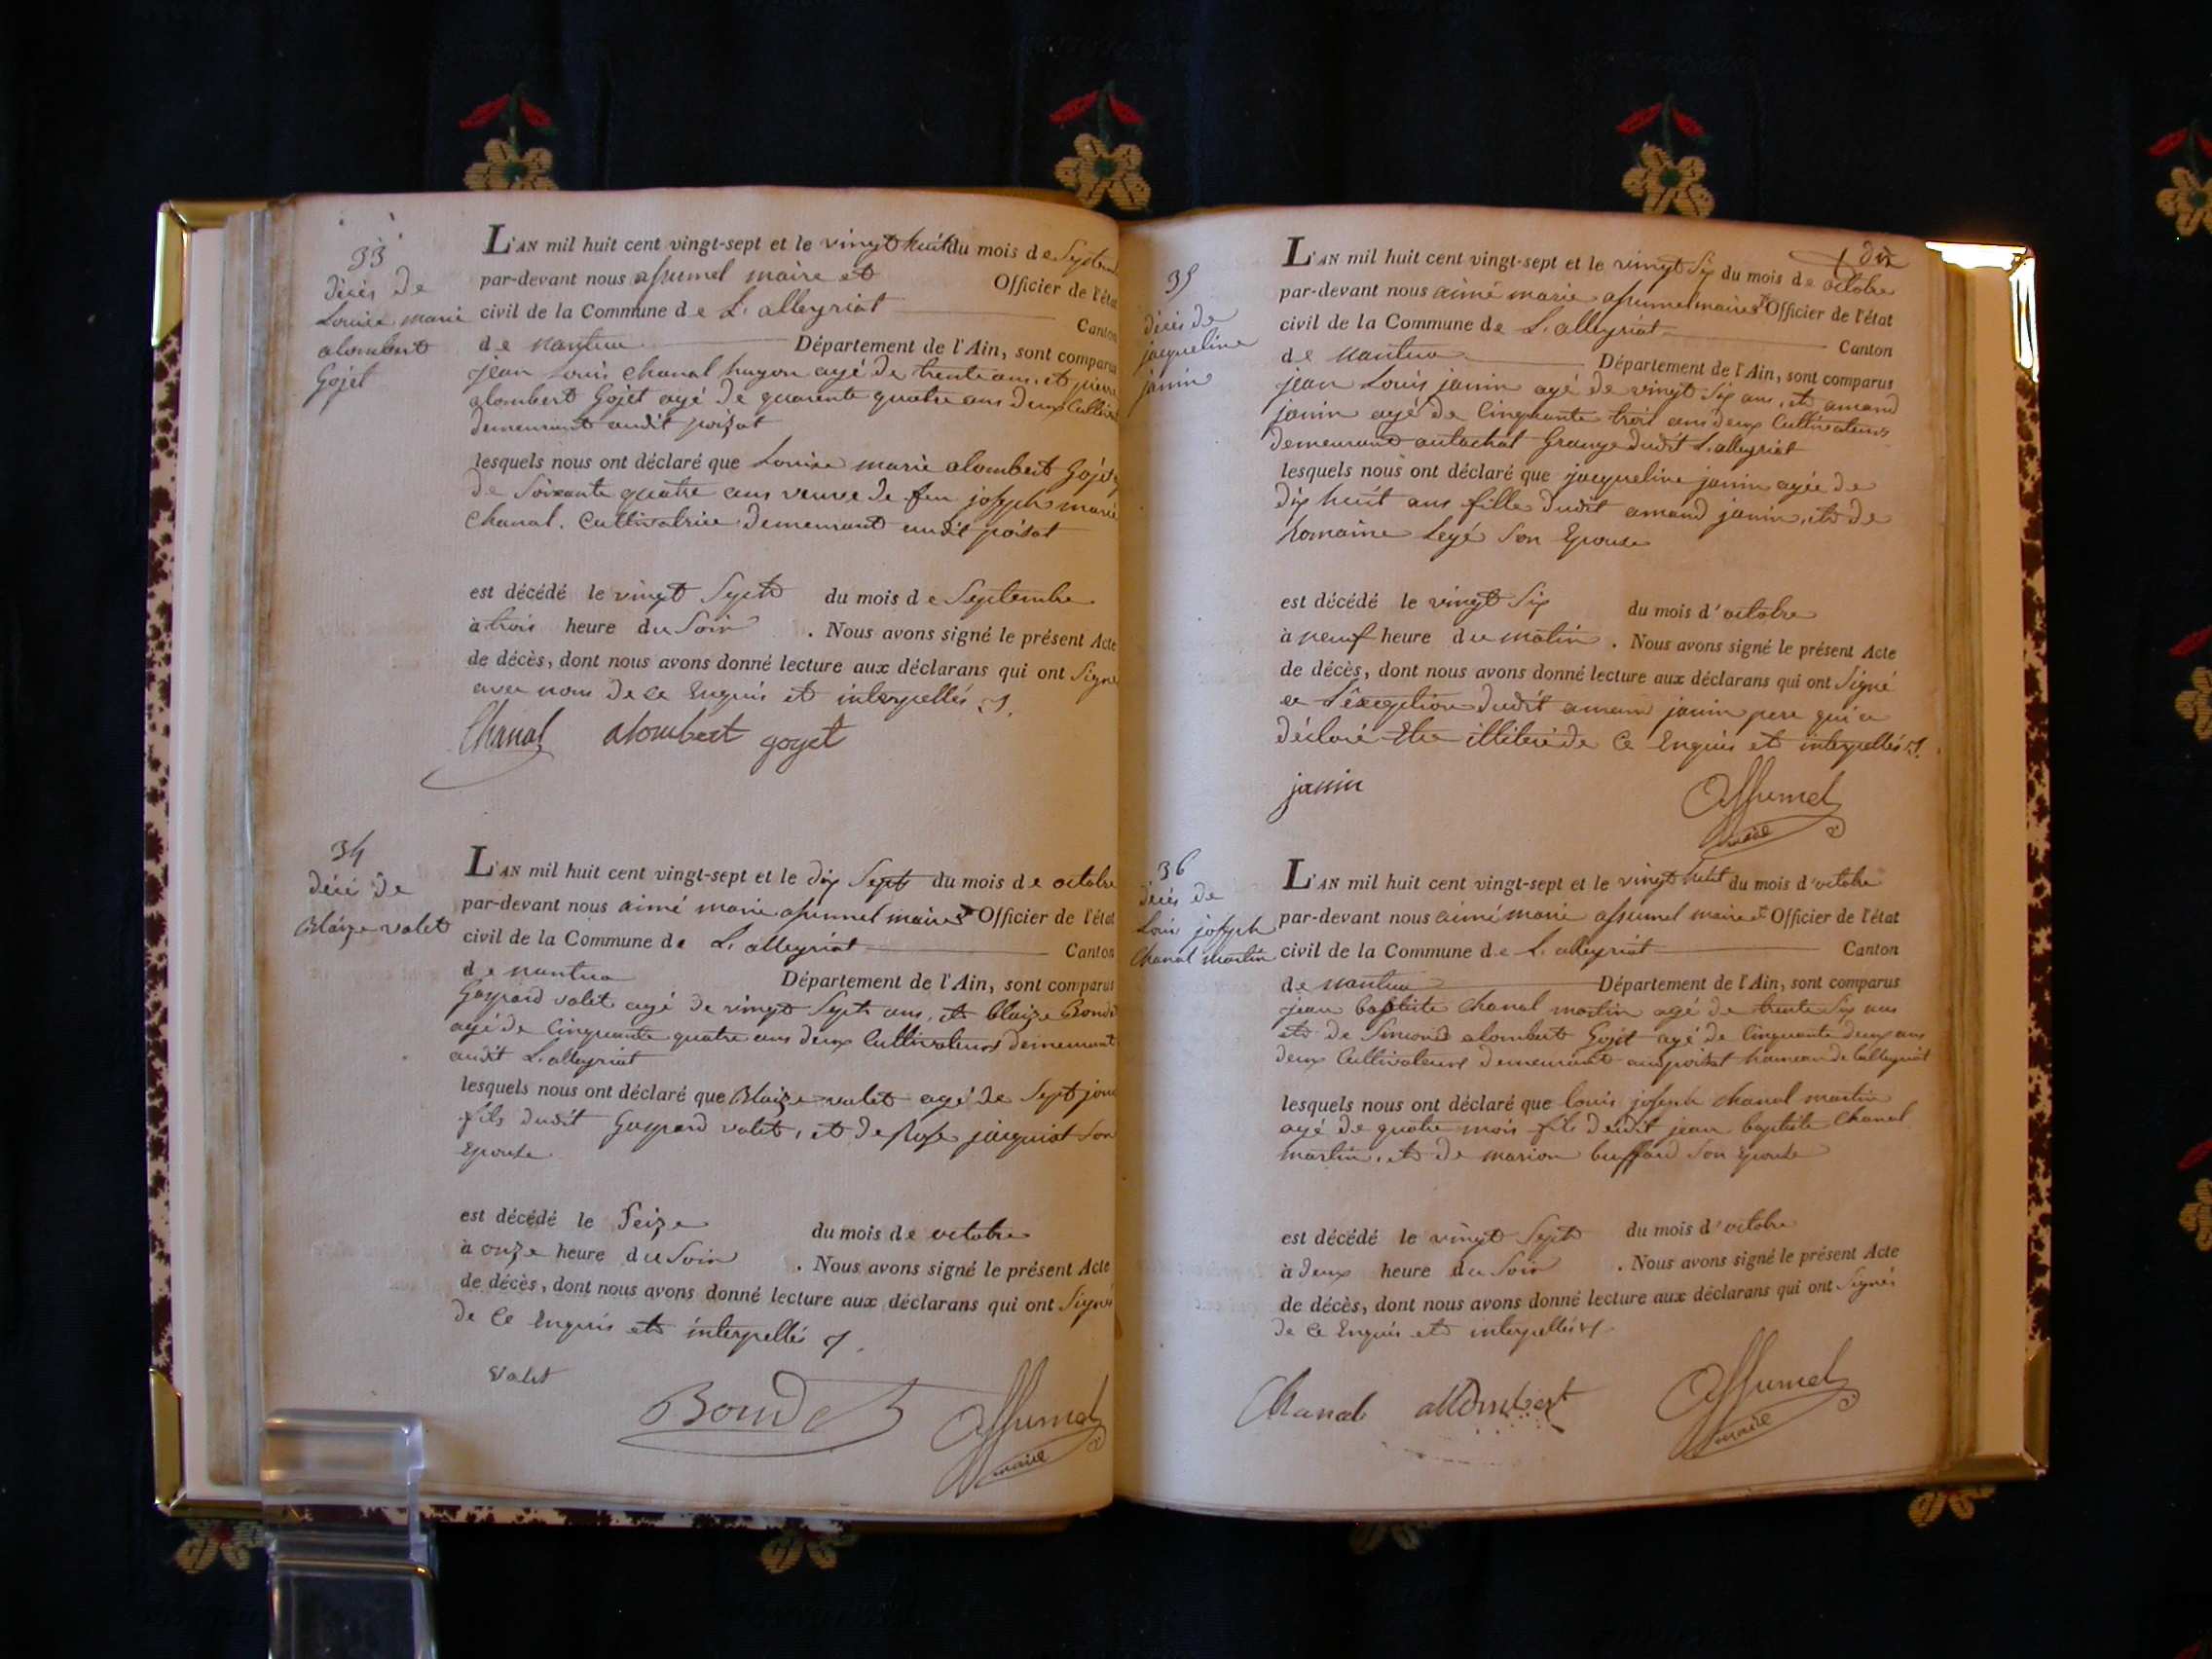 33
décès de
Louise marie
alombert
Gojet
L'AN mil huit cent vingt-sept et le vingt huit du mois de Septem
par-devant nous assumel maire et Officier de l'état
civil de la Commune de L. alleyriat Canton
de nantua Département de l'Ain, sont comparus
jean Louis chanal hugon agé de trente ans, et pierre
alombert Gojet agé de quarente quatre ans deux Cultiv
demeurant audit poizat
lesquels nous ont déclaré que Louise marie alombert Gojet
de Soixante quatre ans veuve de feu joseph marie
Chanal. Cultivatrice demeurant audit poisat
est décédé le vingt Sept du mois de Septembre
à trois heure du Soir . Nous avons signé le présent Acte
de décès, dont nous avons donné lecture aux déclarans qui ont Signé
avec nous de ce Enquis et interpellés
Chanal alombert goyet
34
décé de
Blaize valet
L'AN mil huit cent vingt-sept et le dix Sept du mois de octobre
par-devant nous aimé marie assumel maire et Officier de l'état
civil de la Commune de L. alleyriat Canton
de nantua Département de l'Ain, sont comparus
Gaspard valet agé de vingt Sept ans, et Blaize Bondet
agé de Cinquante quatre ans deux Cultivateurs demeurant
audit L. alleyriat
lesquels nous ont déclaré que Blaize valet agé de Sept jour
fils dudit Gaspard valet, et de Rose jacquiot Son
Epouse
est décédé le Seize du mois de octobre
à onze heure du Soir . Nous avons signé le présent Acte
de décès, dont nous avons donné lecture aux déclarans qui ont Signé
de Ce Enquis et interpellé
valet
Bondet Assumel
maire
dix
35
décès de
jacqueline
janin
L'AN mil huit cent vingt-sept et le vingt Six du mois de octobre
par-devant nous aimé marie assumel maire et Officier de l'état
civil de la Commune de L. alleyriat Canton
de nantua Département de l'Ain, sont comparus
jean Louis janin agé de vingt Six ans, et amand
janin agé de Cinquante trois ans deux Cultivateurs
demeurant Grange dudit L. alleyriat
lesquels nous ont déclaré que jacqueline janin agée de
dix huit ans fille dudit amand janin, et de
Romaine Legé Son Epouse
est décédé le vingt Six du mois d'octobre
à neuf heure du matin . Nous avons signé le présent Acte
de décès, dont nous avons donné lecture aux déclarans qui ont Signé
a l'éxeption dudit aman janin pere qui a
déclaré Etre illiteré de Ce Enquis et interpellés
janin
Assumel
maire
36
décès de
Louis joseph
Chanal martin
L'AN mil huit cent vingt-sept et le vingt huit du mois d'octobre
par-devant nous aimé marie assumel maire et Officier de l'état
civil de la Commune de L. alleyriat Canton
de nantua Département de l'Ain, sont comparus
jean baptiste chanal martin agé de trente Six ans
et de Simond alombert Gojet agé de Cinquante deux ans
deux Cultivateurs demeurant au poizat hameau de Lalleyriat
lesquels nous ont déclaré que louis joseph chanal martin
agé de quatre mois fils dudit jean baptiste Chanal
martin, et de marion buffard Son épouse
est décédé le vingt Sept du mois d'octobre
à deux heure du Soir . Nous avons signé le présent Acte
de décès, dont nous avons donné lecture aux déclarans qui ont Signés
de Ce Enquis et interpellés
Chanal allombert Assumel
maire